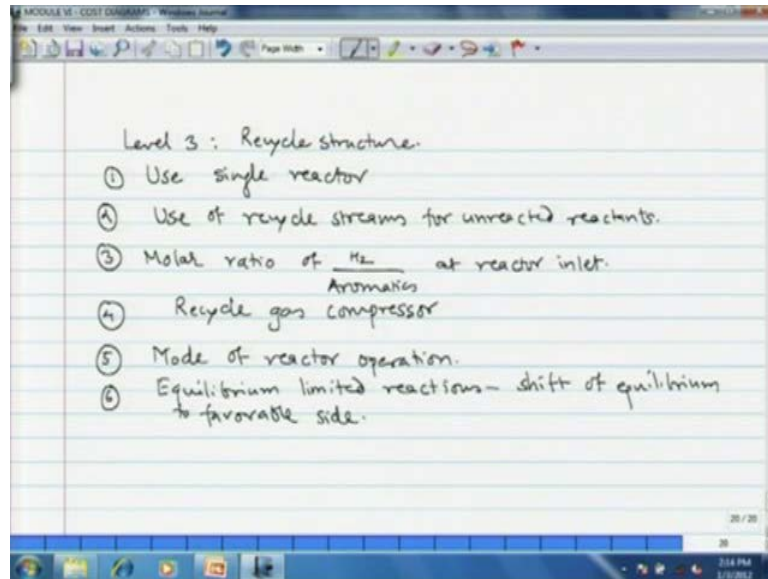 MODULE VI - COST DIAGRAMS - Windows Journal
File Edit View Insert Actions Tools Help
Page Width
Level 3 : Recycle structure.
① Use single reactor
② Use of recycle streams for unreacted reactants.
③ Molar ratio of H2 / Aromatics at reactor inlet.
④ Recycle gas compressor
⑤ Mode of reactor operation.
⑥ Equilibrium limited reactions - shift of equilibrium
to favorable side.
20 / 20
20
2:14 PM
1/3/2012